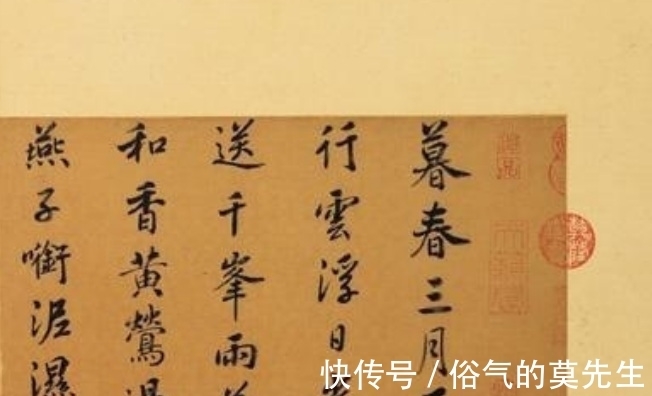 暮春三月
行雲浮日
送千峯雨
和香黄鶯
燕子㘅泥濕
快传号 / 俗气的莫先生